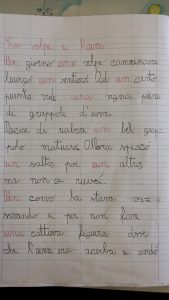 La volpe e l'uva
Un giorno una volpe camminava
lungo un sentiero Ad un certo
punto vide una vigna piena
di grappoli d'uva.
Decise di rubare un bel grap
polo maturo Allora spiccò
un salto poi un altro
ma non ci riuscì.
Un corvo la stava os
servando e per non fare
una cattiva figura disse
che l'uva era acerba e andò